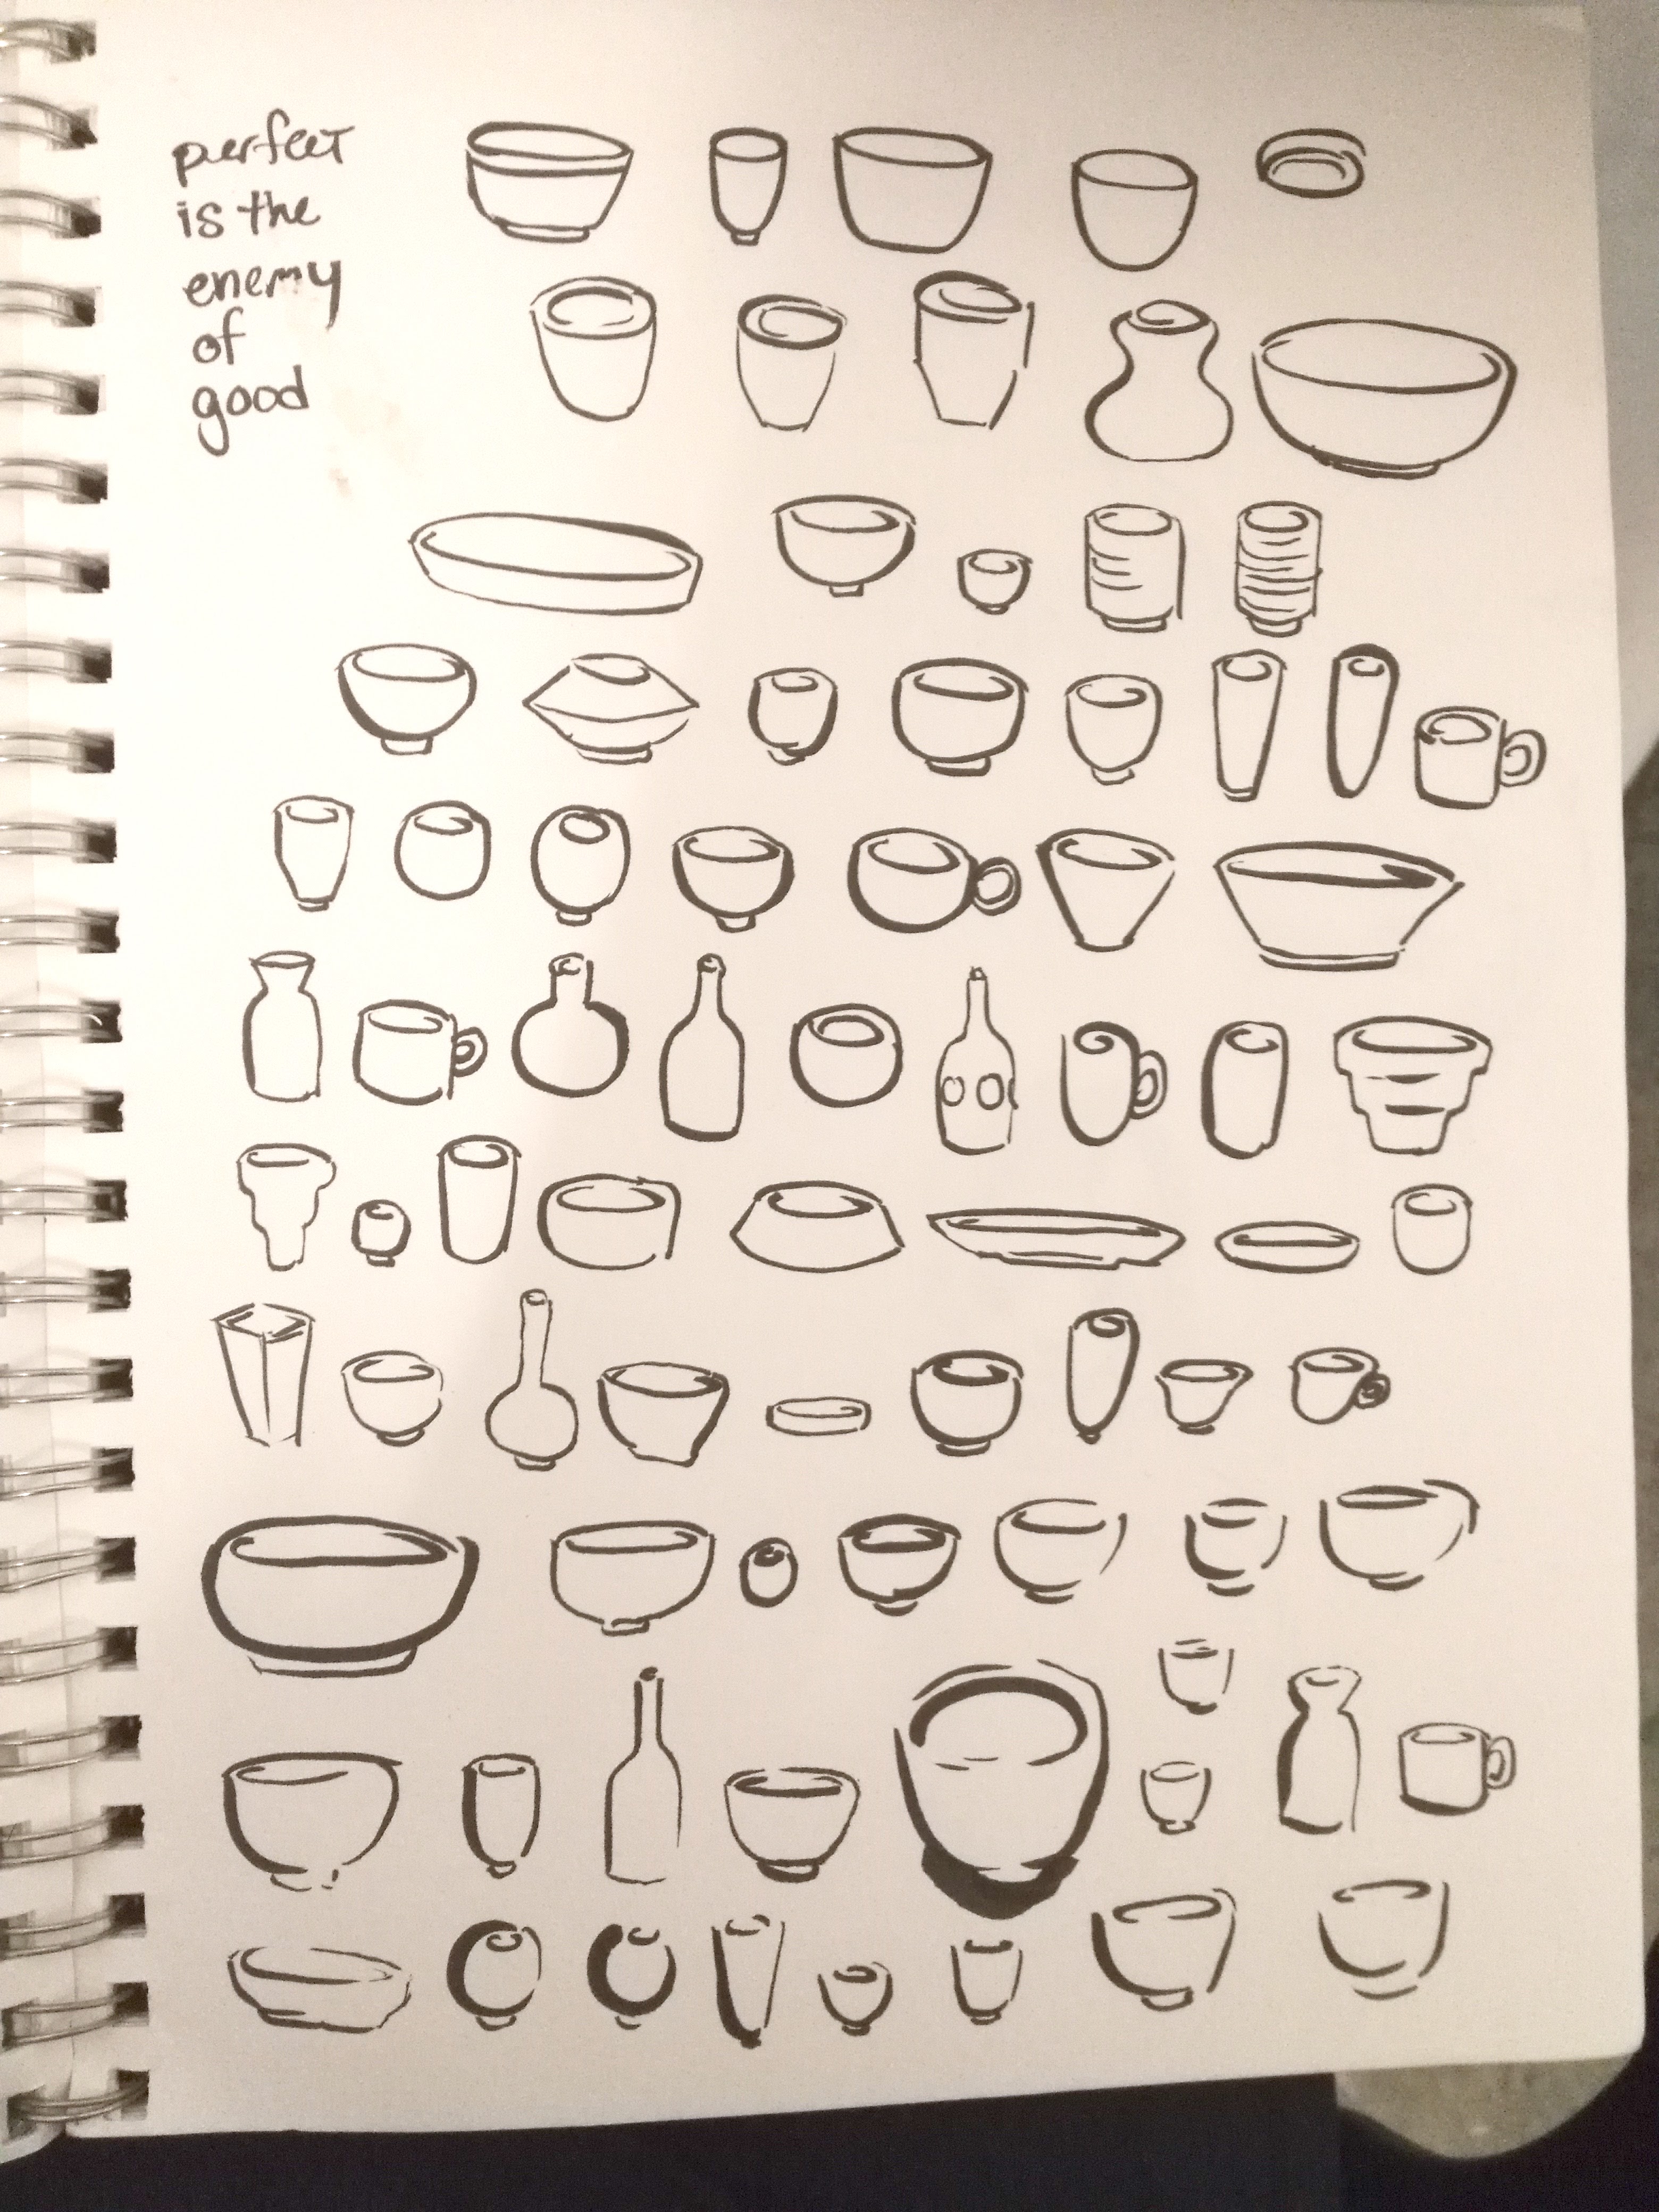 perfect
is the
enemy
of
good